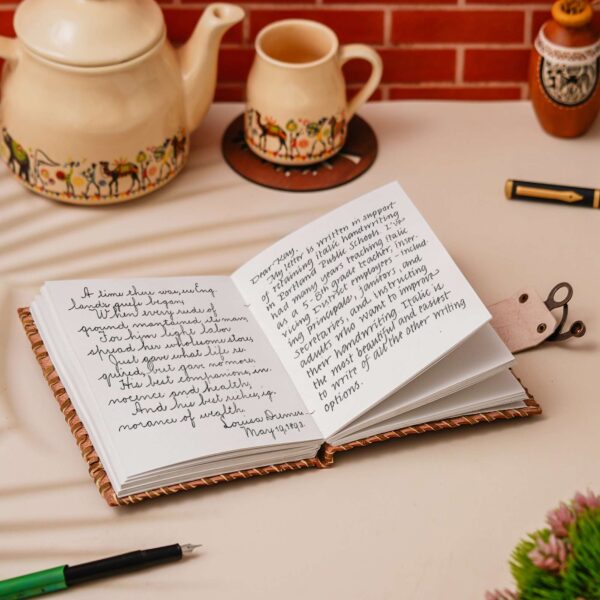 A time there was, ere Eng-
lands griefs began,
When every rude of
ground maintained its man,
For him light labor
spread her wholesome store,
Just gave what life re-
quired, but gave no more.
His best companions, in-
nocence and health,
And his best riches, ig-
norance of wealth.
Louisa
May 19, 1892.
Dear Kay,
My letter is written in support
of retaining italic handwriting
in Portland Public Schools. I've
had many years teaching italic
as a 5-8th grade teacher, inser-
vicing District employers - includ-
ing principals, janitors, and
secretaries, and instructing
adults who want to improve
their handwriting. Italic is
the most beautiful and easiest
to write of all the other writing
options.